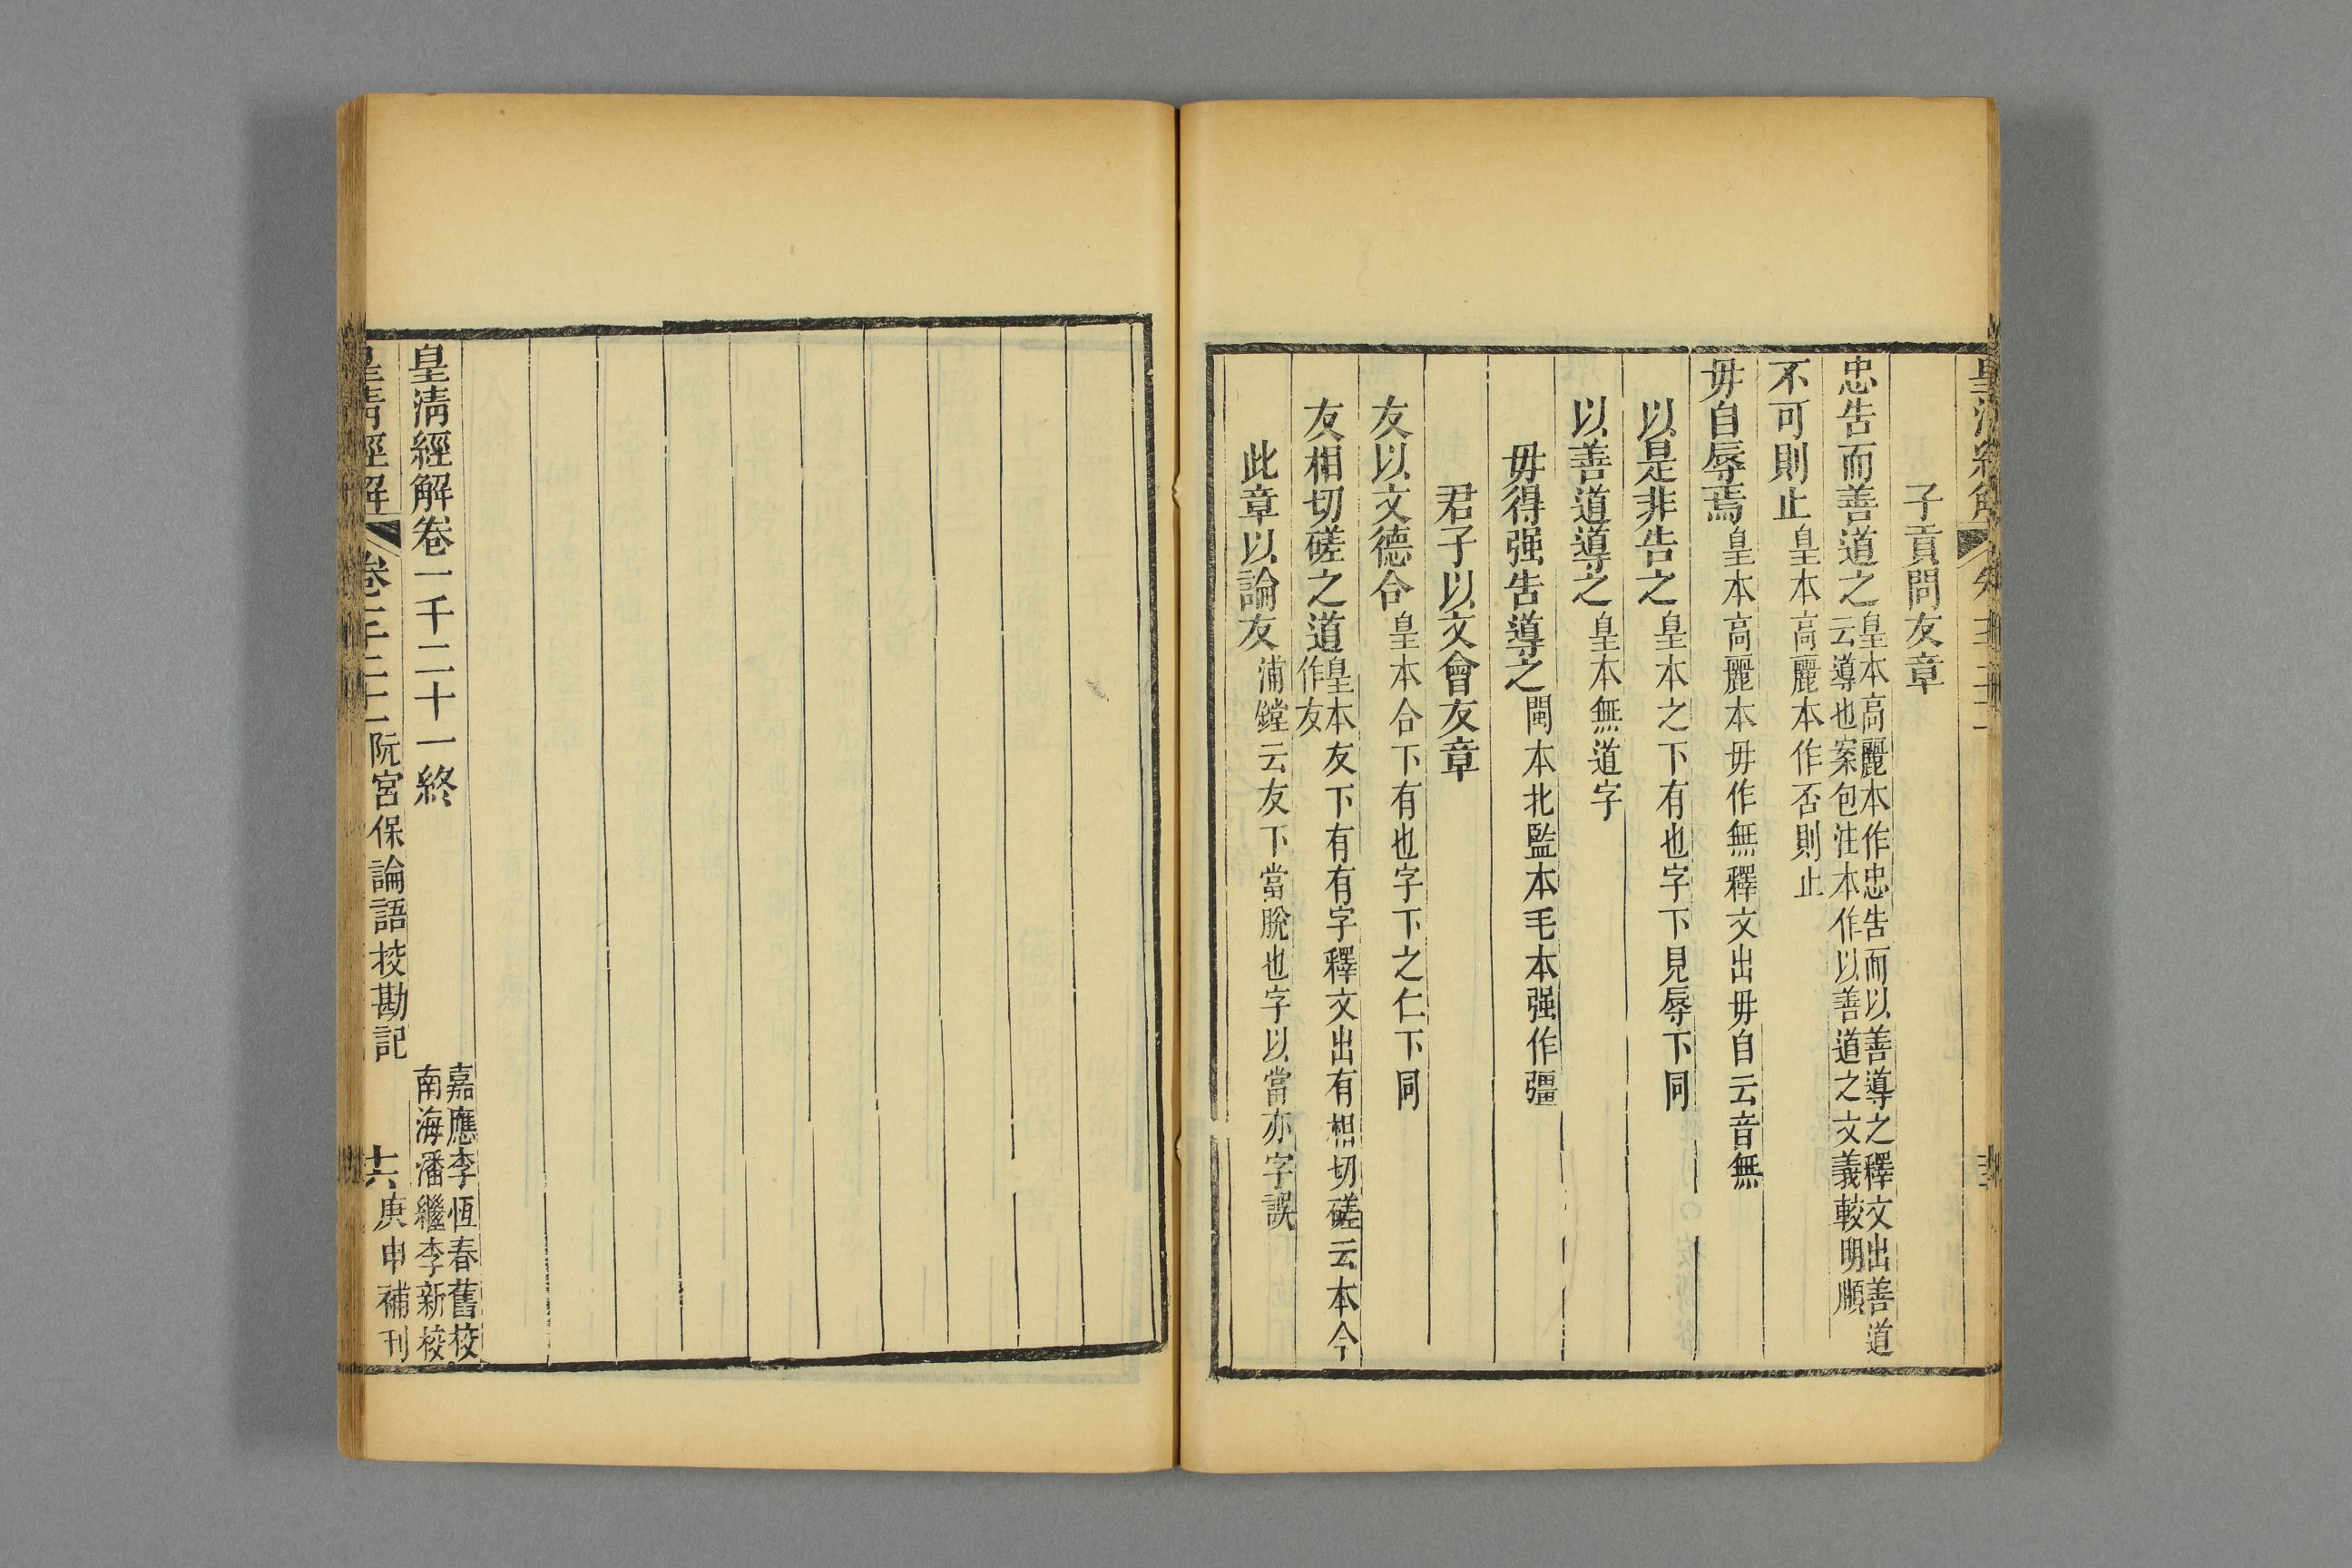 子貢問友章
忠告而善道之皇本高麗本作忠告而以善導之釋文出善道
云導也案包注本作以善道之文義較明順
不可則止皇本高麗本作否則止
毋自辱焉皇本高麗本毋作無釋文出毋自云音無
以是非告之皇本之下有也字下見辱下同
以善道導之皇本無道字
毋得强告導之閩本北監本毛本强作彊
君子以文會友章
友以文德合皇本合下有也字下之仁下同
友相切磋之道皇本友下有有字釋文出有相切磋云本今
作友
此章以論友浦鏜云友下當脫也字以當亦字誤
皇清經解卷一千二十一終
嘉應李恆春舊校
南海潘繼李新校
皇清經解 卷一千二十一 阮宮保論語挍勘記 十六 庚申補刊